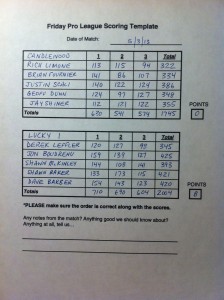 Friday Pro League Scoring Template
Date of Match: 5/3/13
CANDLEWOOD 1 2 3 Total
RICK LIMONE 113 115 94 322
BRIAN FOURNIER 141 86 107 334
JUSTIN SCALI 140 122 124 386
GEOFF DUNN 124 97 127 348
JAY SHINER 112 121 122 355 POINTS
Totals 630 541 574 1745 0
LUCKY 1 1 2 3 Total
DEREK LEFFLER 120 127 98 345
JON BOUDREAU 159 139 127 425
SHAWN 144 108 141 393
DIANA BAKER 133 173 115 421
DAVE BARBER 154 143 123 420 POINTS
Totals 710 690 604 2004 8
*PLEASE make sure the order is correct along with the scores.
Any notes from the match? Anything good we should know about?
Anything at all, tell us...